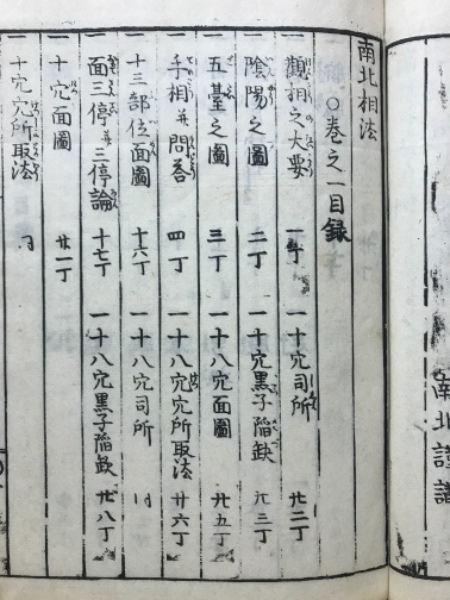 南北相法
○巻之一目録
一 觀相之大要 一丁 一 十穴司所 廿二丁
一 陰陽之圖 二丁 一 十穴黒子陥缺 廿三丁
一 五臺之圖 三丁 一 十八穴面圖 廿五丁
一 手相并問答 四丁 一 十八穴穴所取法 廿六丁
一 十三部位面圖 十六丁 一 十八穴司所
一 面三停并三停論 十七丁 一 十八穴黒子陥缺 廿八丁
一 十穴面圖 廿一丁
一 十穴穴所取法
南北